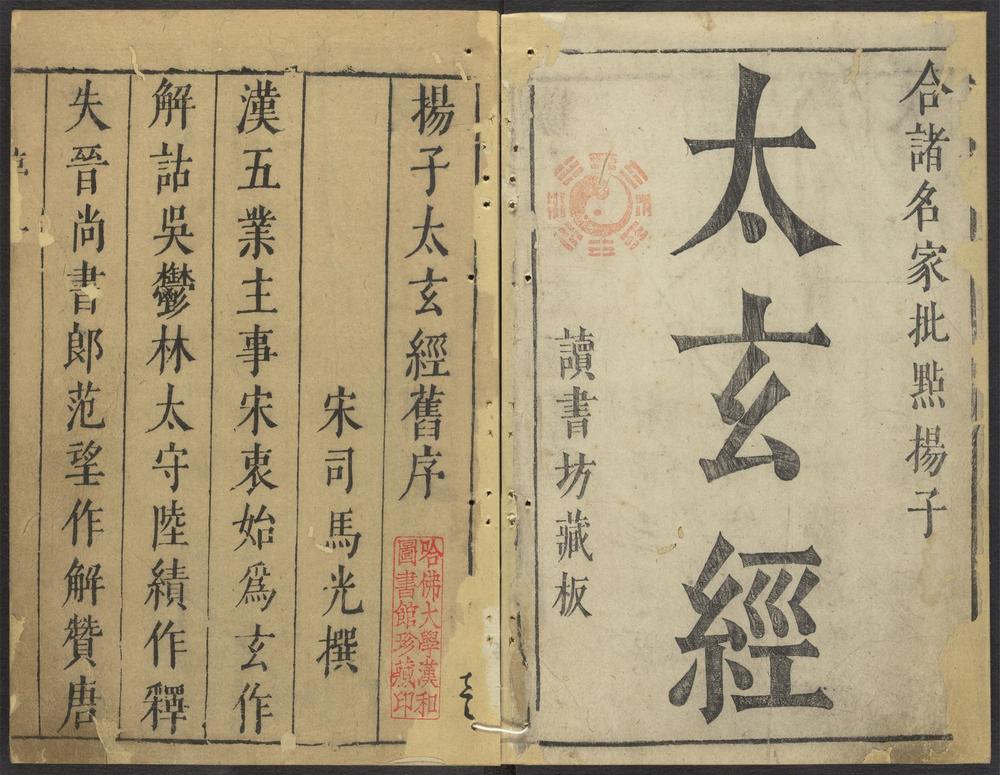 合諸名家批點揚子
太玄經
讀書坊藏板
揚子太玄經舊序
宋司馬光撰
漢五業主事宋衷始爲玄作
解詁吳鬱林太守陸績作釋
失晉尚書郎范望作解贊唐
哈佛大學漢和
圖書館珍藏印